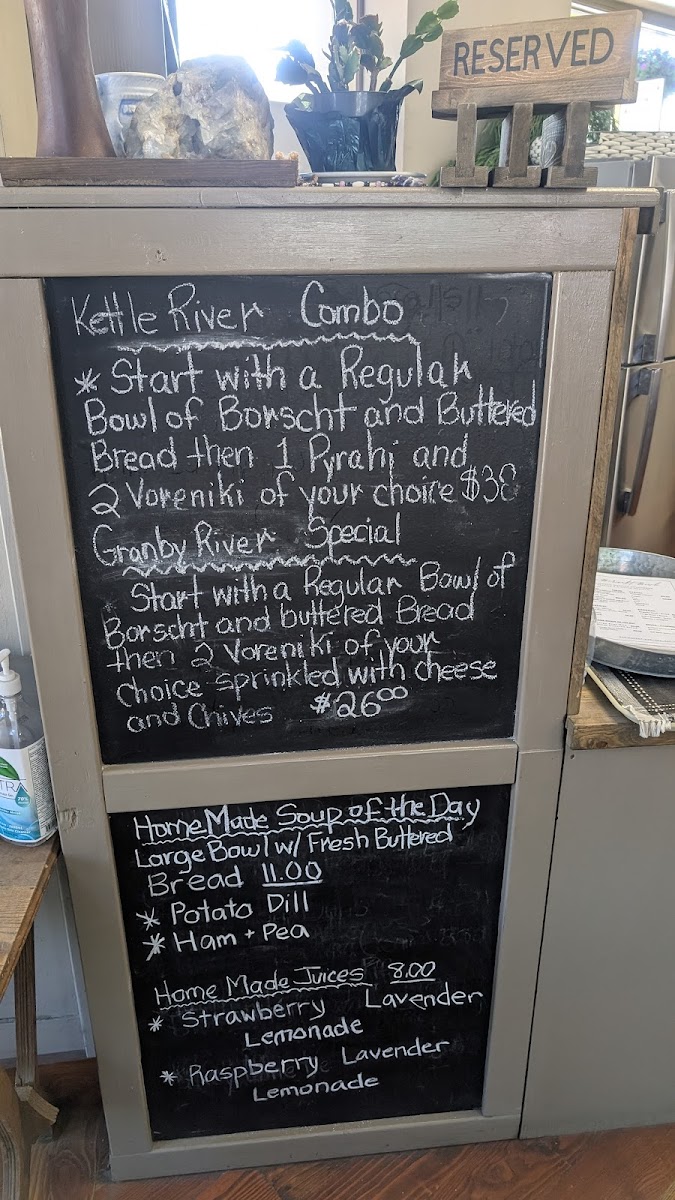 RESERVED
Kettle River Combo
* Start with a Regular
Bowl of Borscht and Buttered
Bread then 1 Pyrahi and
2 Voreniki of your choice $38
Granby River Special
Start with a Regular Bowl of
Borscht and buttered Bread
then 2 Voreniki of your
choice sprinkled with cheese
and Chives $26.00
Home Made Soup of the Day
Large Bowl w/ Fresh Buttered
Bread 11.00
* Potato Dill
* Ham + Pea
Home Made Juices 8.00
* Strawberry Lavender
Lemonade
* Raspberry Lavender
Lemonade